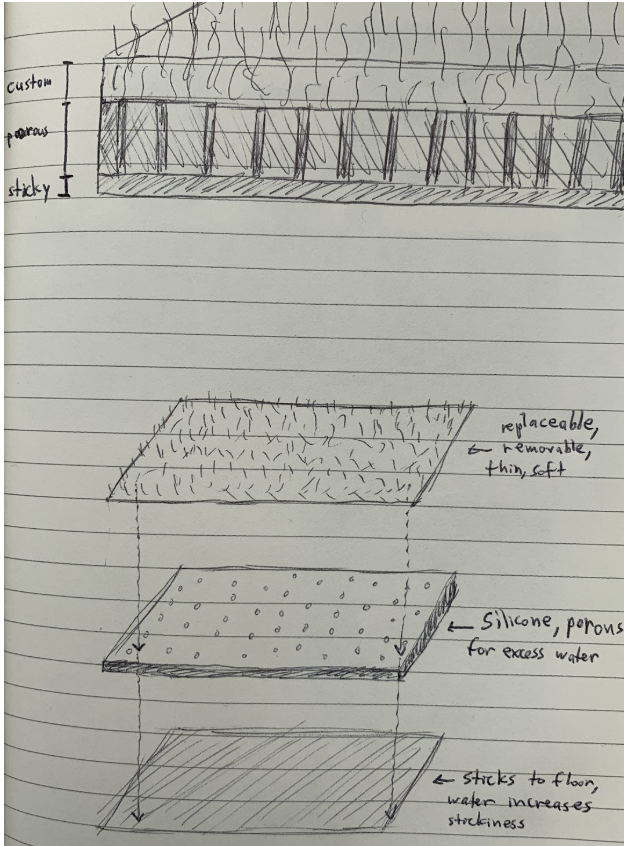 custom
porous
sticky
replaceable,
removable,
thin, soft
Silicone, porous
for excess water
sticks to floor,
water increases
stickiness